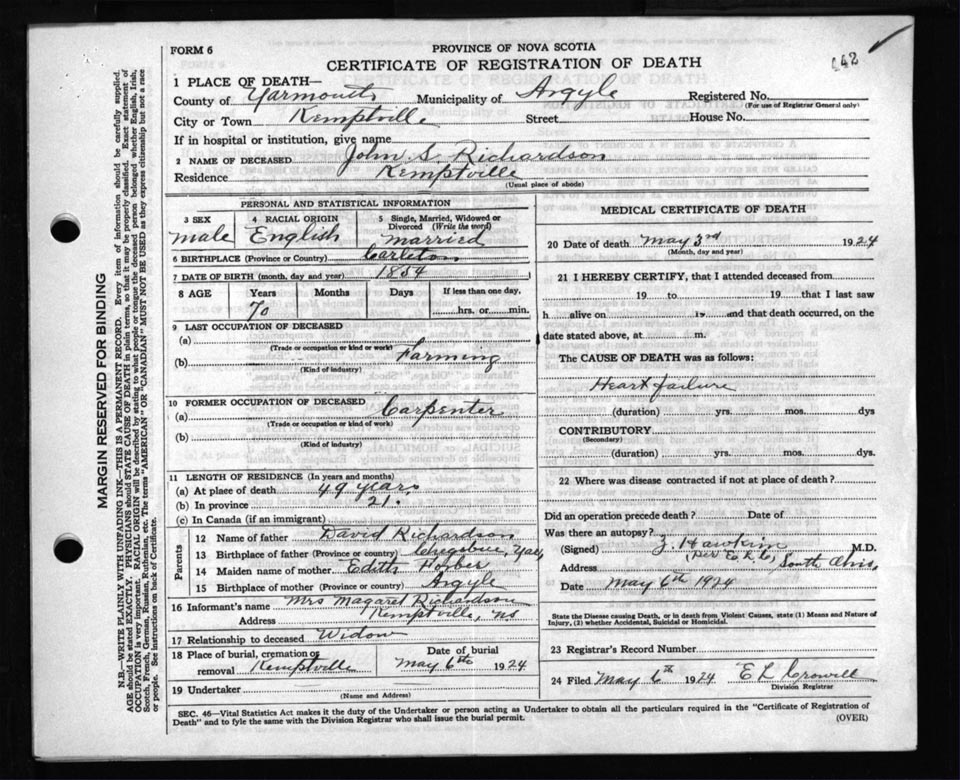 142
FORM 6
PROVINCE OF NOVA SCOTIA
CERTIFICATE OF REGISTRATION OF DEATH
1 PLACE OF DEATH—
County of Yarmouth Municipality of Argyle Registered No.
(For use of Registrar General only)
City or Town Kemptville Street House No.
If in hospital or institution, give name
2 NAME OF DECEASED John S. Richardson
Residence Kemptville
(Usual place of abode)
PERSONAL AND STATISTICAL INFORMATION
3 SEX 4 RACIAL ORIGIN 5 Single, Married, Widowed or Divorced (Write the word)
male English married
6 BIRTHPLACE (Province or Country) Carleton
7 DATE OF BIRTH (month, day and year) 1854
8 AGE Years Months Days If less than one day,
70 hrs. or min.
9 LAST OCCUPATION OF DECEASED
(a)
(Trade or occupation or kind or work)
(b) Farming
(Kind of industry)
10 FORMER OCCUPATION OF DECEASED
(a) Carpenter
(Trade or occupation or kind of work)
(b)
(Kind of industry)
11 LENGTH OF RESIDENCE (In years and months)
(a) At place of death 49 years
(b) In province 21.
(c) In Canada (if an immigrant)
Parents
12 Name of father David Richardson
13 Birthplace of father (Province or country)
14 Maiden name of mother Edith
15 Birthplace of mother (Province or country) Argyle
16 Informant's name Mrs Magaret Richardson
Address Kemptville, N.S
17 Relationship to deceased Widow
18 Place of burial, cremation or removal Kemptville
Date of burial
May 6th 1924
19 Undertaker
(Name and Address)
MEDICAL CERTIFICATE OF DEATH
20 Date of death May 3rd 1924
(Month, day and year)
21 I HEREBY CERTIFY, that I attended deceased from
19 to 19 that I last saw
h alive on 19 and that death occurred, on the
date stated above, at m.
The CAUSE OF DEATH was as follows:
Heart failure
(duration) yrs. mos. dys
CONTRIBUTORY
(Secondary)
(duration) yrs. mos. dys.
22 Where was disease contracted if not at place of death?
Did an operation precede death? Date of
Was there an autopsy?
(Signed) M.D.
Address South
Date May 6th 1924
State the Disease causing Death, or in death from Violent Causes, state (1) Means and Nature of
Injury, (2) whether Accidental, Suicidal or Homicidal.
23 Registrar's Record Number
24 Filed May 6th 1924 E L Crowell
Division Registrar
SEC. 46—Vital Statistics Act makes it the duty of the Undertaker or person acting as Undertaker to obtain all the particulars required in the "Certificate of Registration of
Death" and to fyle the same with the Division Registrar who shall issue the burial permit.
(OVER)
MARGIN RESERVED FOR BINDING
N.B.—WRITE PLAINLY WITH UNFADING INK—THIS IS A PERMANENT RECORD. Every item of information should be carefully supplied.
AGE should be stated EXACTLY. PHYSICIANS should STATE CAUSE OF DEATH in plain terms, so that it may be properly classified. Exact statement of
OCCUPATION is very important. RACIAL ORIGIN will be described by stating to what people or tongue the deceased person belonged whether English, Irish,
Scotch, French, German, Russian, Ruthenian, etc. The terms "AMERICAN" or "CANADIAN" MUST NOT BE USED as they express citizenship but not a race
or people. See instructions on back of Certificate.